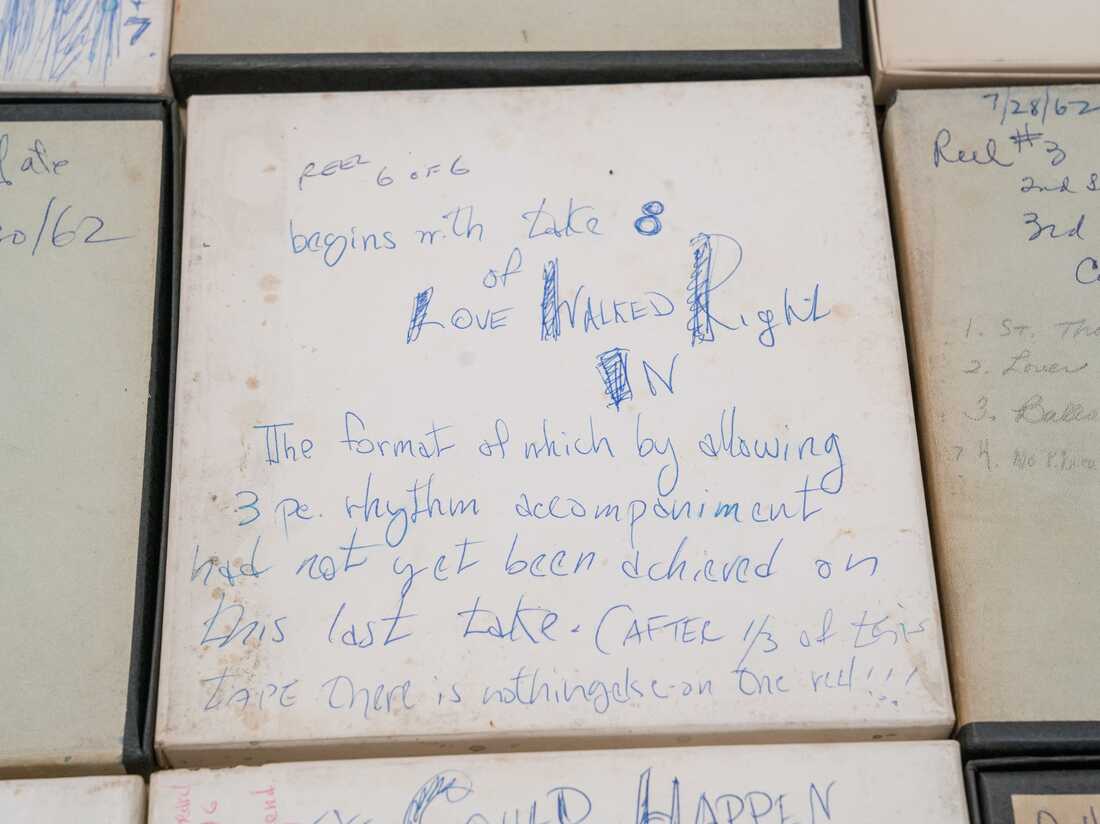 7
ate
/62
REEL 6 OF 6
begins with take 8
of
LOVE WALKED Right
IN
The format of which by allowing
3 pc. rhythm accompaniment
had not yet been achieved on
this last take. (AFTER 1/3 of this
TAPE there is nothing else on the reel!!!
7/28/62
Reel #3
2nd
3rd
1. St. Tho
2. Lover
3. Balla
4. No
end
COULD HAPPEN